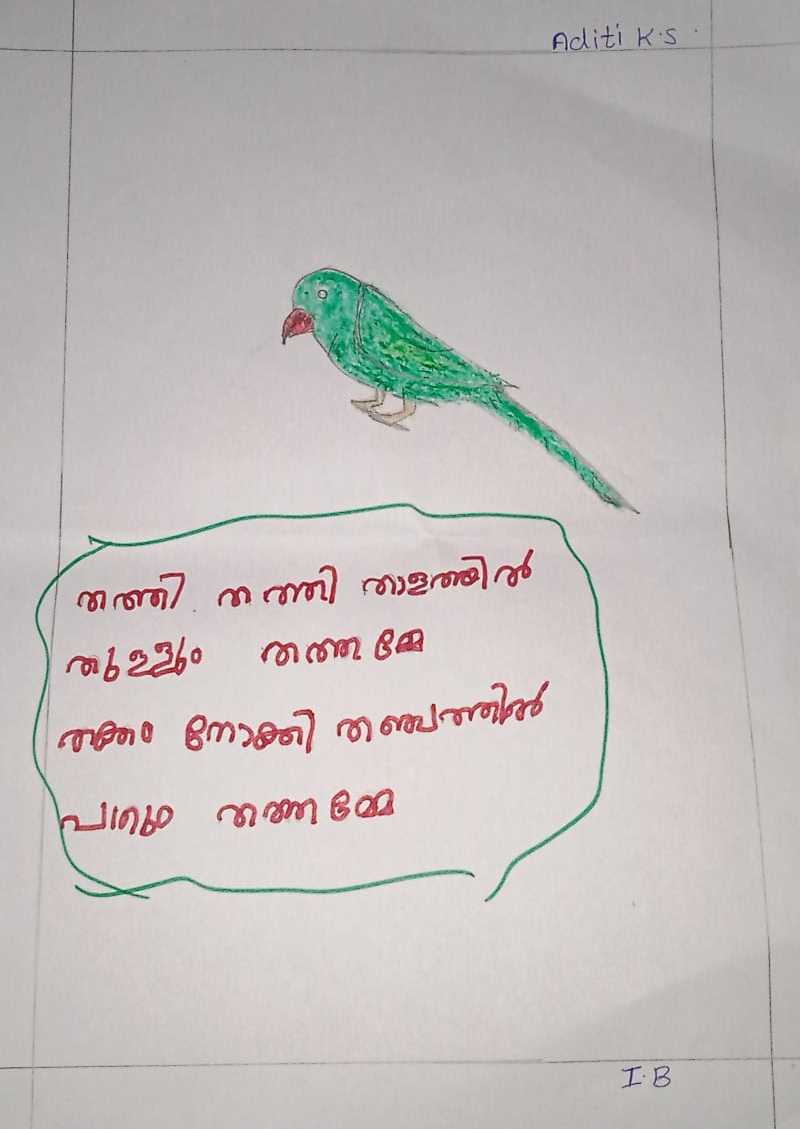 Aditi K.S
തത്തി തത്തി താളത്തിൽ
തുള്ളും തത്തമ്മേ
തക്കം നോക്കി തഞ്ചത്തിൽ
പാറും തത്തമ്മേ
I.B